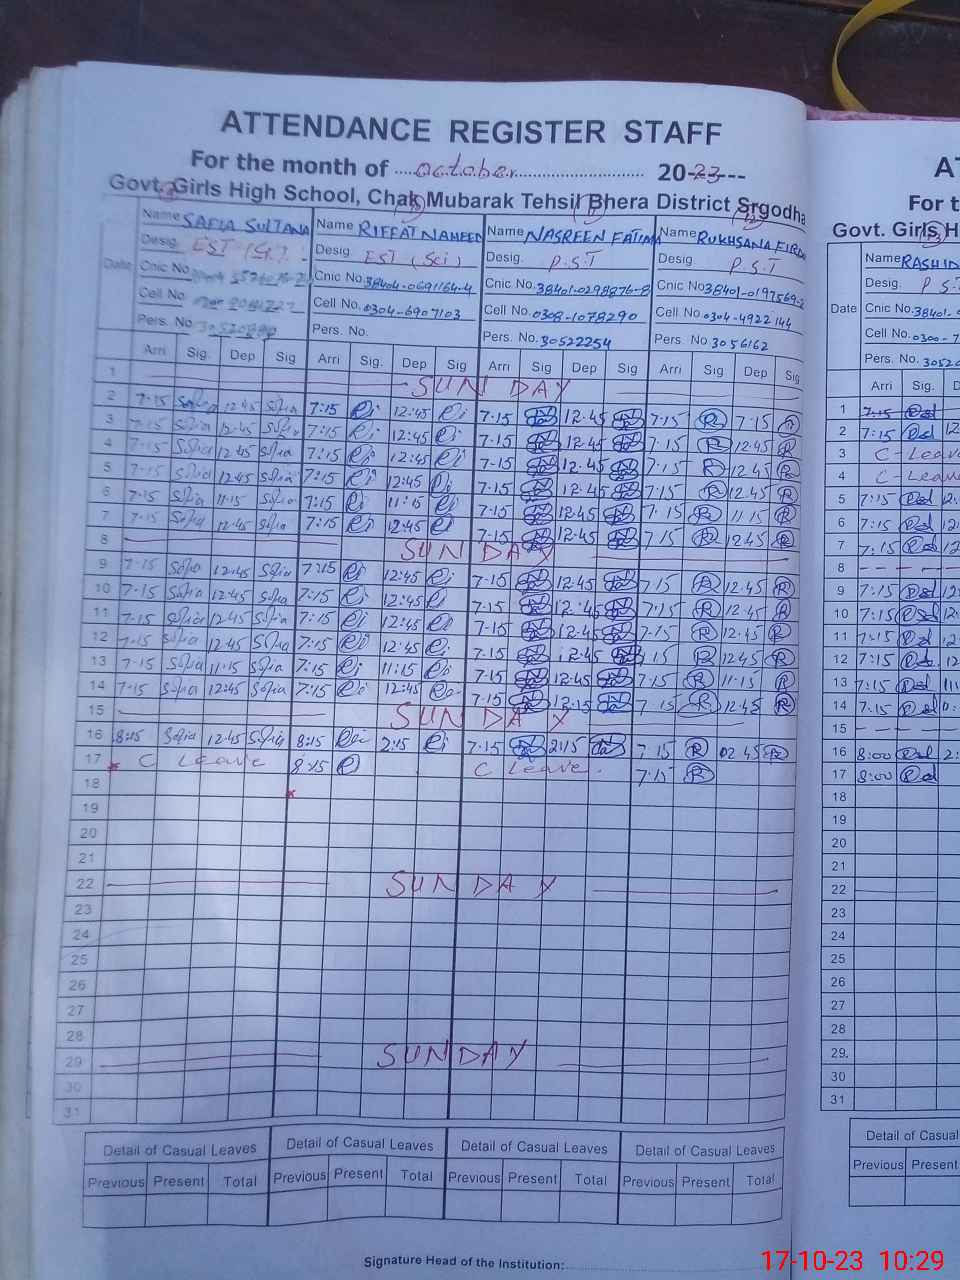 ATTENDANCE REGISTER STAFF
For the month of October 2023
Govt. Girls High School, Chak Mubarak Tehsil Bhera District Srgodha
Name SAFIA SULTANA Name RIFFAT NAHEED Name NASREEN FATIMA Name RUKHSANA FIRD
Desig. EST (Sci). Desig. EST (Sci) Desig. P.S.T Desig. P.S.T
Date Cnic No. Cnic No. 38404-0691164-4 Cnic No. 38401-0298876-8 Cnic No 38401-0197569-2
Cell No. Cell No. 0304-6907103 Cell No. 0308-1078290 Cell No. 0304-4922144
Pers. No. 30520890 Pers. No. Pers. No. 30522254 Pers. No. 3056162
Arri Sig. Dep Sig Arri Sig. Dep Sig Arri Sig Dep Sig Arri Sig Dep Sig
1 SUNDAY
2 7-15 Safia 12:45 Safia 7:15 12:45 7-15 12-45 7-15 R 7-15 R
3 7-15 Safia 12-45 Safia 7:15 12:45 7-15 12-45 7-15 R 12.45 R
4 7-15 Safia 12-45 Safia 7:15 12:45 7-15 12-45 7-15 R 12.45 R
5 7-15 Safia 12-45 Safia 7:15 12:45 7-15 12-45 7-15 R 12.45 R
6 7-15 Safia 11-15 Safia 7:15 11:15 7-15 7.15 R 11.15 R
7 7-15 Safia 12-45 Safia 7:15 12:45 7-15 12-45 7.15 R 12.45 R
8 SUNDAY
9 7-15 Safia 12:45 Safia 7:15 12:45 7-15 12-45 7.15 R 12.45 R
10 7-15 Safia 12:45 Safia 7:15 12:45 7-15 12-45 7.15 R 12.45 R
11 7-15 Safia 12-45 Safia 7:15 12:45 7-15 12-45 7.15 R 12.45 R
12 7-15 Safia 12-45 Safia 7:15 12:45 7-15 12-45 R 12.45 R
13 7-15 Safia 11-15 Safia 7:15 11:15 7-15 12-45 7.15 R 11-15 R
14 7-15 Safia 12:45 Safia 7:15 12:45 7-15 12-15 7.15 R 12.45 R
15 SUNDAY
16 8:15 Safia 12-45 Safia 8:15 2:15 7-15 2:15 7.15 R 02.45 R
17 C Leave 8:15 C Leave. 7:15 R
18
19
20
21
22 SUNDAY
23
24
25
26
27
28
29 SUNDAY
30
31
Detail of Casual Leaves Detail of Casual Leaves Detail of Casual Leaves Detail of Casual Leaves
Previous Present Total Previous Present Total Previous Present Total Previous Present Total
Signature Head of the Institution:
AT
For t
Govt. Girls H
Name RASHID
Desig. P.S
Date Cnic No. 38401-
Cell No. 0300-7
Pers. No. 3052
Arri Sig.
1 7:15
2 7:15
3 C-Leave
4 C-Leave
5 7:15
6 7:15
7 7:15
8
9 7:15
10 7:15
11 7:15
12 7:15
13 7:15
14 7:15
15
16 8:00
17 8:00
18
19
20
21
22
23
24
25
26
27
28
29.
30
31
Detail of Casual
Previous Present
17-10-23 10:29